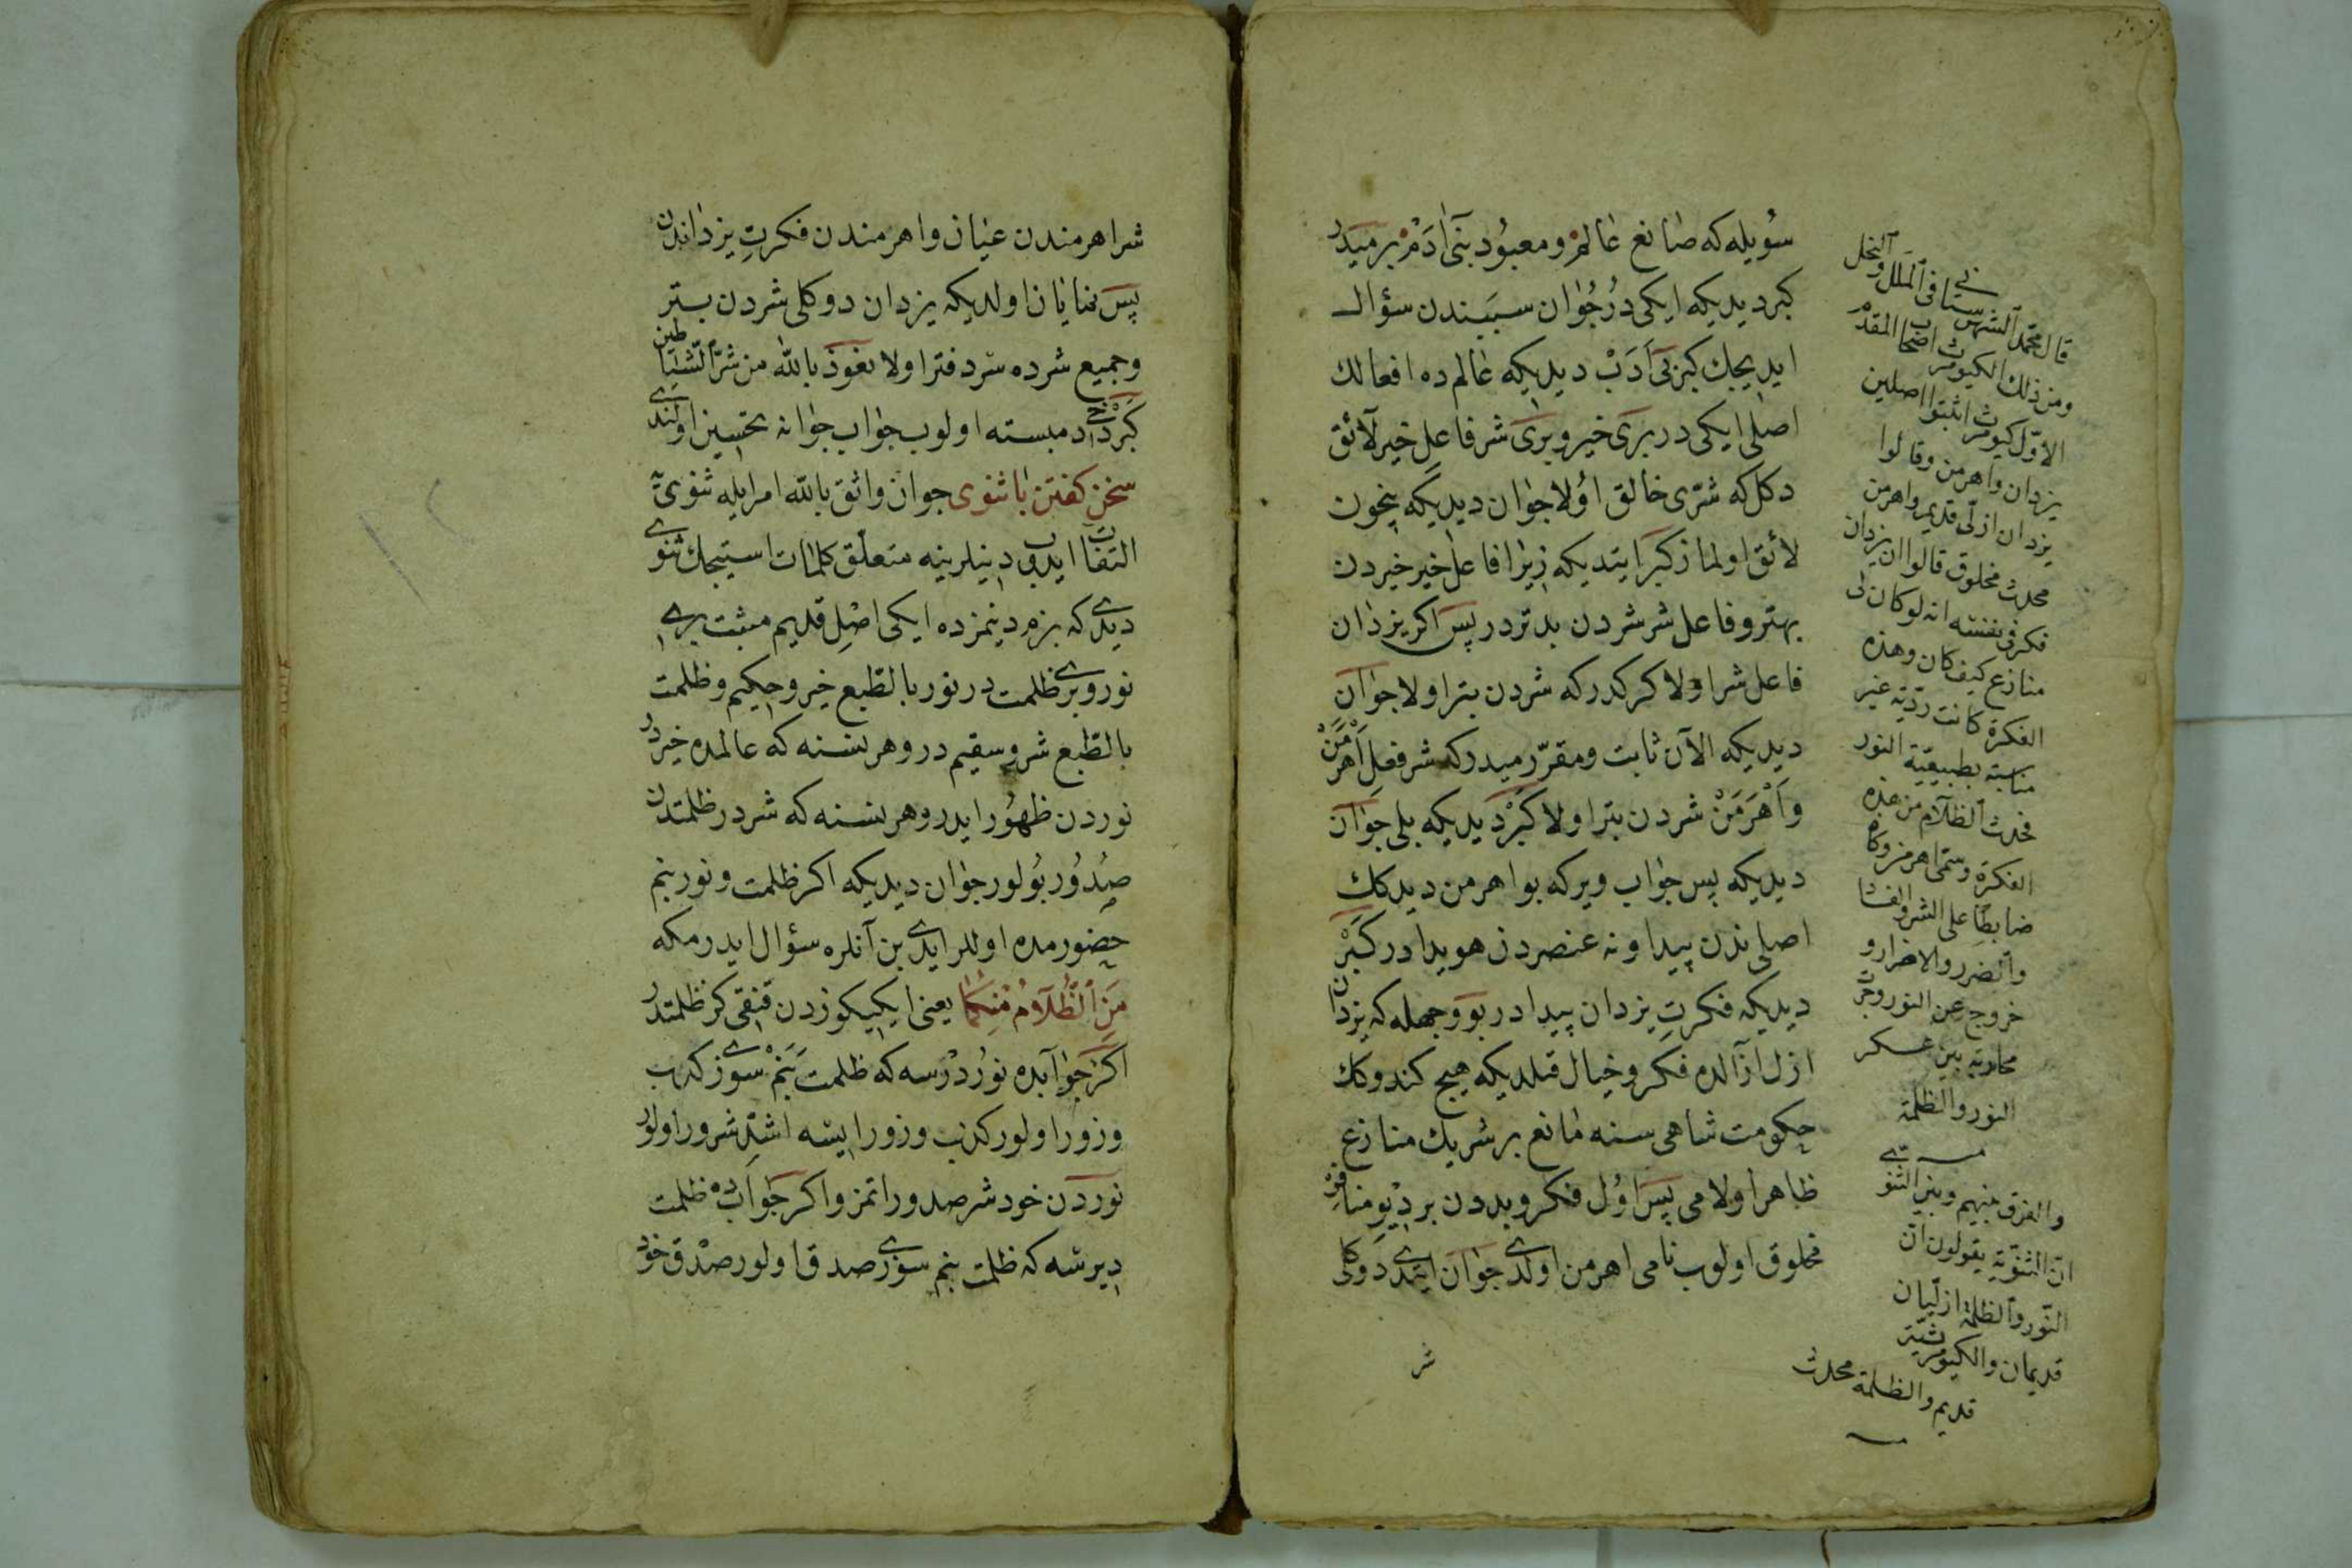 سُویله که صانع عالم و معبود بنی آدم بر میدر
کبر دیدیکه ایکی در جوان سببندن سؤال
ایدیجك کبر بی ادب دیدیکه عالم ده افعالك
اصلی ایکی در بری خیر و بری شر فاعل خیر لائق
دکل که شرّی خالق اولا جوان دیدیکه نیچون
لائق اولماز کبر ایتدیکه زیرا فاعل خیر خیردن
بهتر و فاعل شر شردن بدتر در پس اکر یزدان
فاعل شر اولا کرکدر که شردن بتر اولا جوان
دیدیکه الآن ثابت و مقرّر میدر که شر فعل اَهْرَمَنْ
و اَهْرَمَنْ شردن بتر اولا کَبْر دیدیکه بلی جوان
دیدیکه پس جواب ویر که بو اهرمن دیدکك
اصلی ندن پیدا و نه عنصردن هویدا در کَبْر
دیدیکه فکرتِ یزدان پیدا در بو وجهله که یزدان
ازل آزالده فکر و خیال قیلدیکه هیچ کندوکك
حکومت شاهی سنه مانع بر شریك منازع
ظاهر اولا می پس اوْل فکر و بددن بر دیو منافر
مخلوق اولوب نامی اهرمن اولدی جوان ایتدی دوکلی
شر
قال محمد الشهرستانی فی الملل و النحل
ومن ذلك الکیومرث اصحاب المقدم
الاوّل کیومرث اثبتوا اصلین
یزدان واهرمن وقالوا
یزدان ازلی قدیم واهرمن
محدث مخلوق قالوا ان یزدان
فکر فی نفسه انه لو کان لی
منازع کیف کان وهذه
الفکرة کانت ردیّة غیر
مناسبة بطبیعیّة النور
فحدث الظلام من هذه
الفکرة وسمّی اهرمن وکان
ضابطا علی الشر والفساد
والضرر والاضرار و
خروج عن النور وجرت
محاربة بین عسکر
النور والظلمة
والفرق بینهم وبین الثنوی
انّ الثنویّة یقولون انّ
النّور والظلمة ازلیّان
قدیمان والکیومرثیّة
قدیم والظلمة محدث
شر اهرمندن عیان و اهرمندن فکرتِ یزداندن
پس نمایان اولدیکه یزدان دوکلی شردن بتر
و جمیع شرده سر دفتر اولا نعوذ بالله من شرّ الشیاطین
کَبْر دخی دم بسته اولوب جواب جوانه تحسین اولندی
سخن کفتن با ثنوی جوان واثق بالله امر ایله ثنوی یه
التفات ایدوب دینلرینه متعلّق کلمات استیجك ثنوی
دیدی که بزم دینمزده ایکی اصل قدیم مثبت بری
نور و بری ظلمت در نور بالطّبع خیر و حکیم و ظلمت
بالطّبع شر و سقیم در و هر نسنه که عالمده خیر در
نوردن ظهور ایدر و هر نسنه که شر در ظلمتدن
صُدُور بولور جوان دیدیکه اکر ظلمت و نور بنم
حضورمده اولرلر ایدی بن آنلره سؤال ایدرمکه
مَنِ الظَّلامُ مِنْکُمَا یعنی ایکیکوزدن قنقی کز ظلمتدر
اکر جوابده نور درسه که ظلمت بَنَمْ سوزی کذب
و زور اولور کذب و زور ایسه اشدّ شرور اولور
نوردن خود شر صدور اتمز و اکر جوابده ظلمت
دیرسه که ظلمت بنم سوزی صدق اولور صدق خود